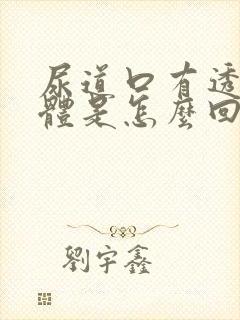 尿道口有透
體是怎麼回
劉宇鑫